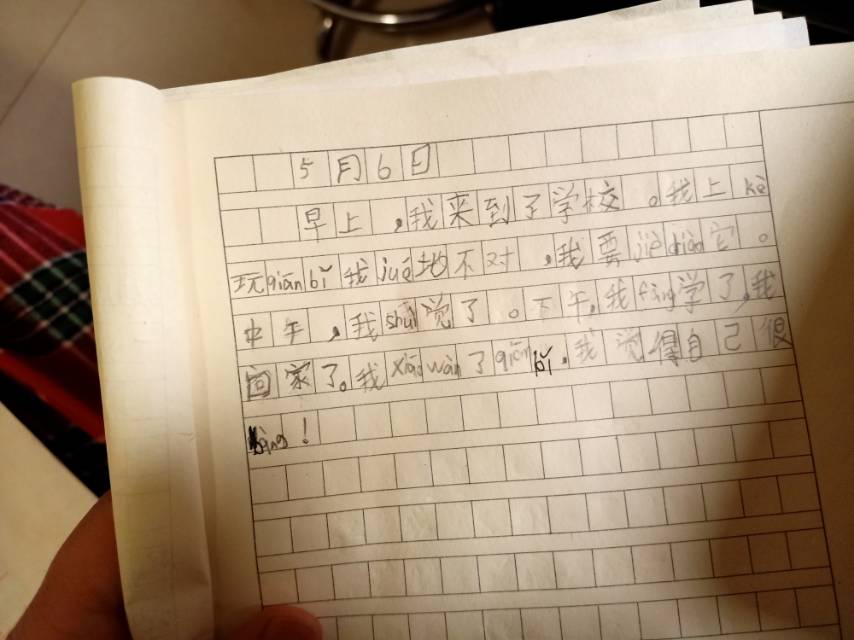 5月6日
早上,我来到了学校。我上kè
玩qiān bǐ我jué地不对,我要jiè diào它。
中午,我shuì觉了。下午,我fàng学了,我
回家了。我xiāo wán了qiān bǐ,我觉得自己很
bàng!